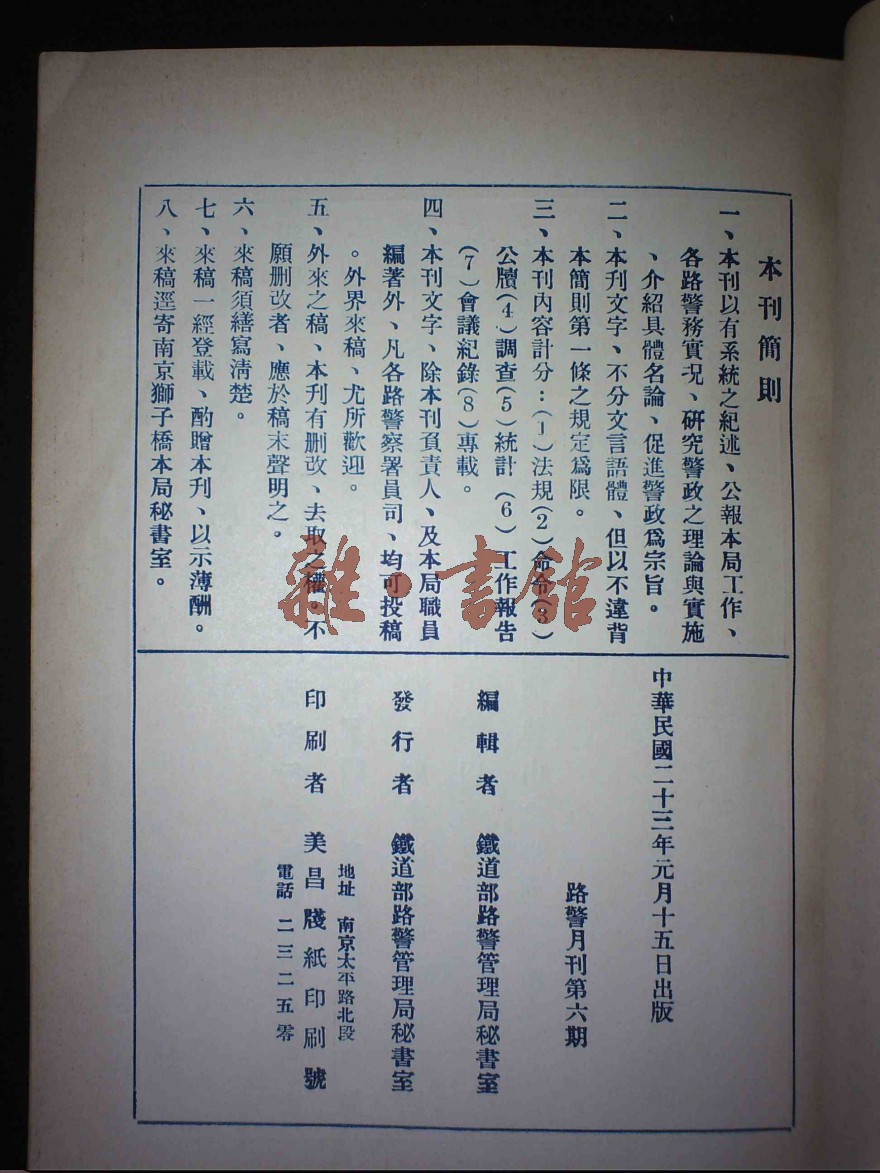 本刊簡則
一、本刊以有系統之紀述、公報本局工作、
各路警務實况、研究警政之理論與實施
、介紹具體名論、促進警政爲宗旨。
二、本刋文字、不分文言語體、但以不違背
本簡則第一條之規定爲限。
三、本刊內容計分：(1)法規(2)命令(3)
公牘(4)調查(5)統計(6)工作報告
(7)會議紀錄(8)專載。
四、本刊文字、除本刊負責人、及本局職員
編著外、凡各路警察署員司、均可投稿
。外界來稿、尤所歡迎。
五、外來之稿、本刊有删改、去取之權。不
願删改者、應於稿末聲明之。
六、來稿須繕寫清楚。
七、來稿一經登載、酌贈本刊、以示薄酬。
八、來稿逕寄南京獅子橋本局秘書室。
中華民國二十三年元月十五日出版
路警月刊第六期
編輯者 鐵道部路警管理局秘書室
發行者 鐵道部路警管理局秘書室
地址 南京太平路北段
印刷者 美昌牋紙印刷號
電話 二三二五零
雜·書館